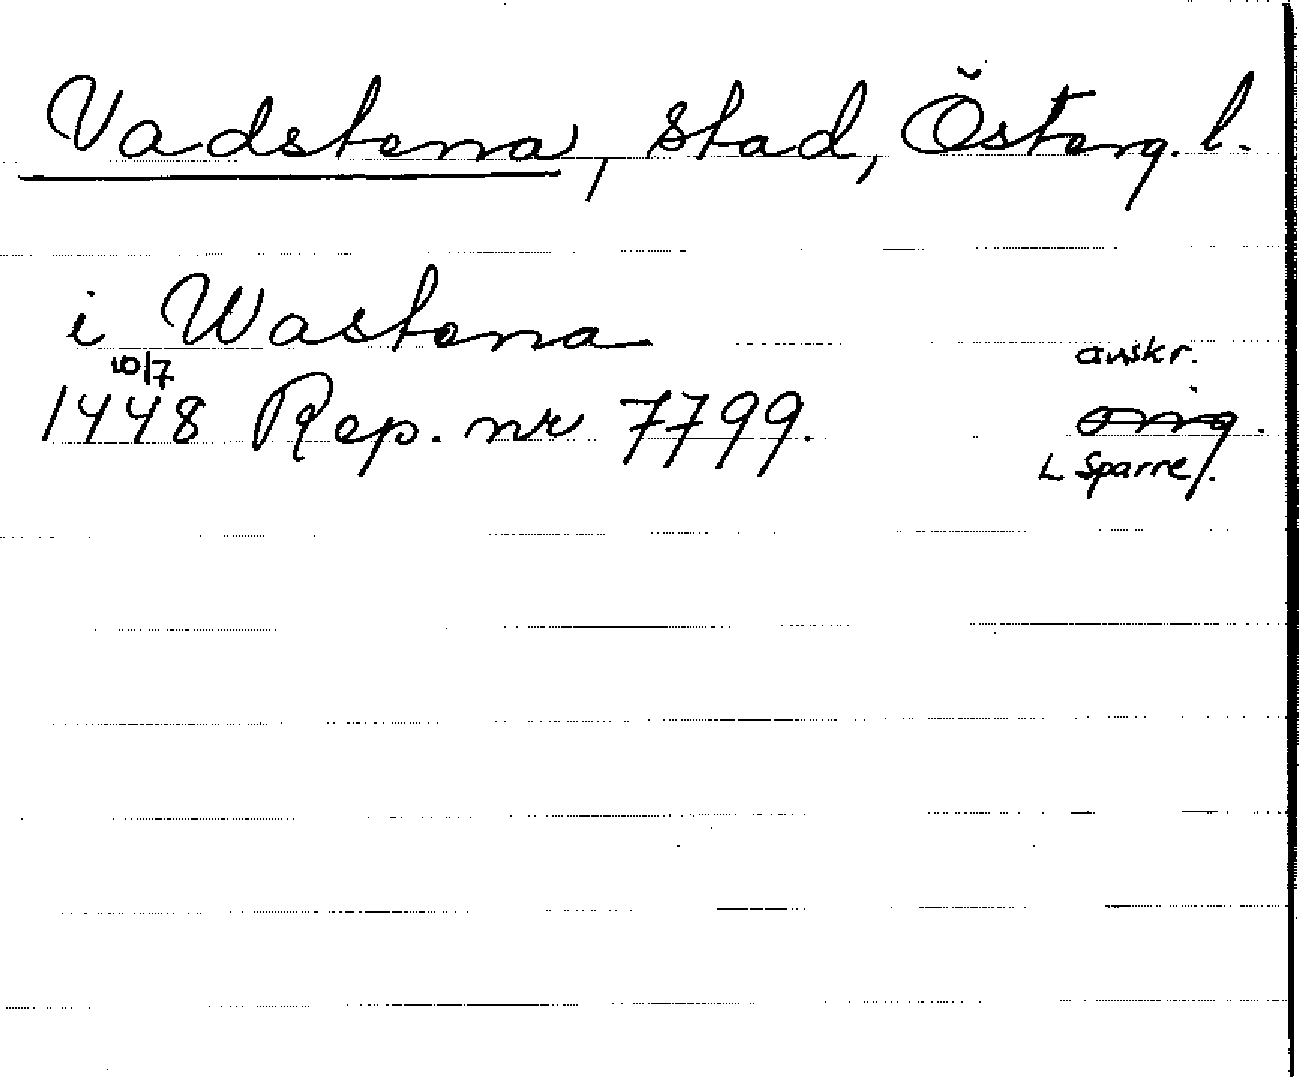 Vadstena, stad, Österg. l.
i Wastena
10/7
1448 Rep. nr 7799.
avskr.
orig.
L Sparre.